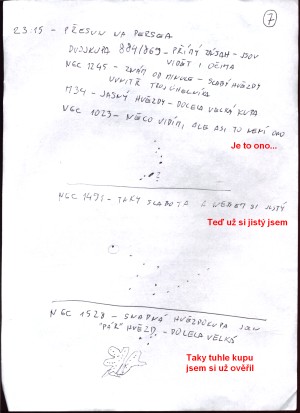 7
23:15 - PŘESUN NA PERSEA
DVOJKUPA 884/869 - PŘÍMÝ ZÁSAH - JSOU
VIDĚT I OČIMA
NGC 1245 - ZNÁM OD MINULE - SLABÝ HVĚZDY
UVNITŘ TROJÚHELNÍKA
M34 - JASNÝ HVĚZDY - DOCELA VELKÁ KUPA
NGC 1023 - NĚCO VIDÍM, ALE ASI TO NENÍ ONO
Je to ono...
NGC 1491 - TAKY SLABOTA A NEJSEM SI JISTÝ
Teď už si jistý jsem
NGC 1528 - SNADNÁ HVĚZDOKUPA JSOU
"PÁR" HVĚZD - DOCELA VELKÁ
Taky tuhle kupu
jsem si už ověřil